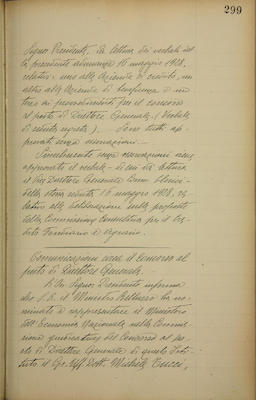 299
Signor Presidente, dà lettura dei verbali del-
la precedente adunanza 16 maggio 1928,
relativi: uno alle Aziende di credito, un
altro alle Aziende di beneficenza e un
terzo ai provvedimenti per il concorso
al posto di Direttore Generale (Verbale
di seduta segreta). Sono tutti ap-
provati senza osservazioni.
Successivamente senza osservazioni viene
approvato il verbale di cui dà lettura
il Vice Direttore Generale
della stessa seduta 16 maggio 1928, re-
lativo alla deliberazione sulle proposte
della Commissione Consultiva per il Cre-
dito Fondiario e Agrario.
Comunicazioni circa il Concorso al
posto di Direttore Generale.
Il Signor Presidente informa
che S. E. il Ministro Belluzzo ha no-
minato a rappresentare il Ministero
dell'Economia Nazionale nella Commis-
sione giudicatrice del Concorso al po-
sto di Direttore Generale di questo Isti-
tuto il Gr. Uff. Dott. Michele Tucci,